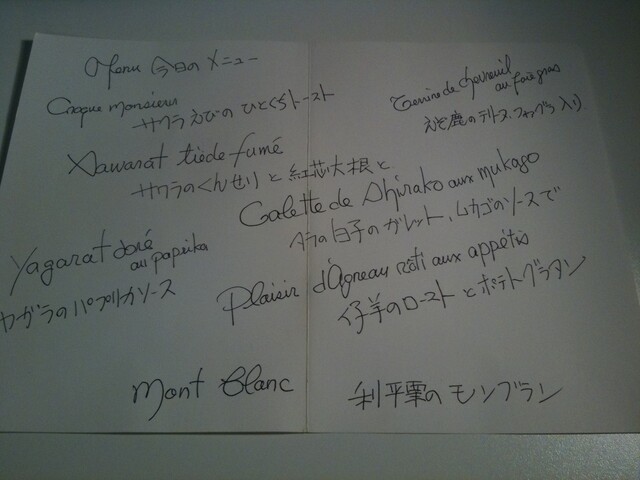 Menu 今日のメニュー
Croque monsieur
サクラえびのひとくちトースト
Terrine de chevreuil
au foie gras
えぞ鹿のテリーヌ、フォアグラ入り
Sawarat tiède fumé
サワラのくんせいと紅芯大根と
Galette de Shirako aux mukago
タラの白子のガレット、ムカゴのソースで
Yagarat doré
au paprika
ヤガラのパプリカソース
Plaisir d'Agneau rôti aux appétis
仔羊のローストとポテトグラタン
Mont Blanc
利平栗のモンブラン